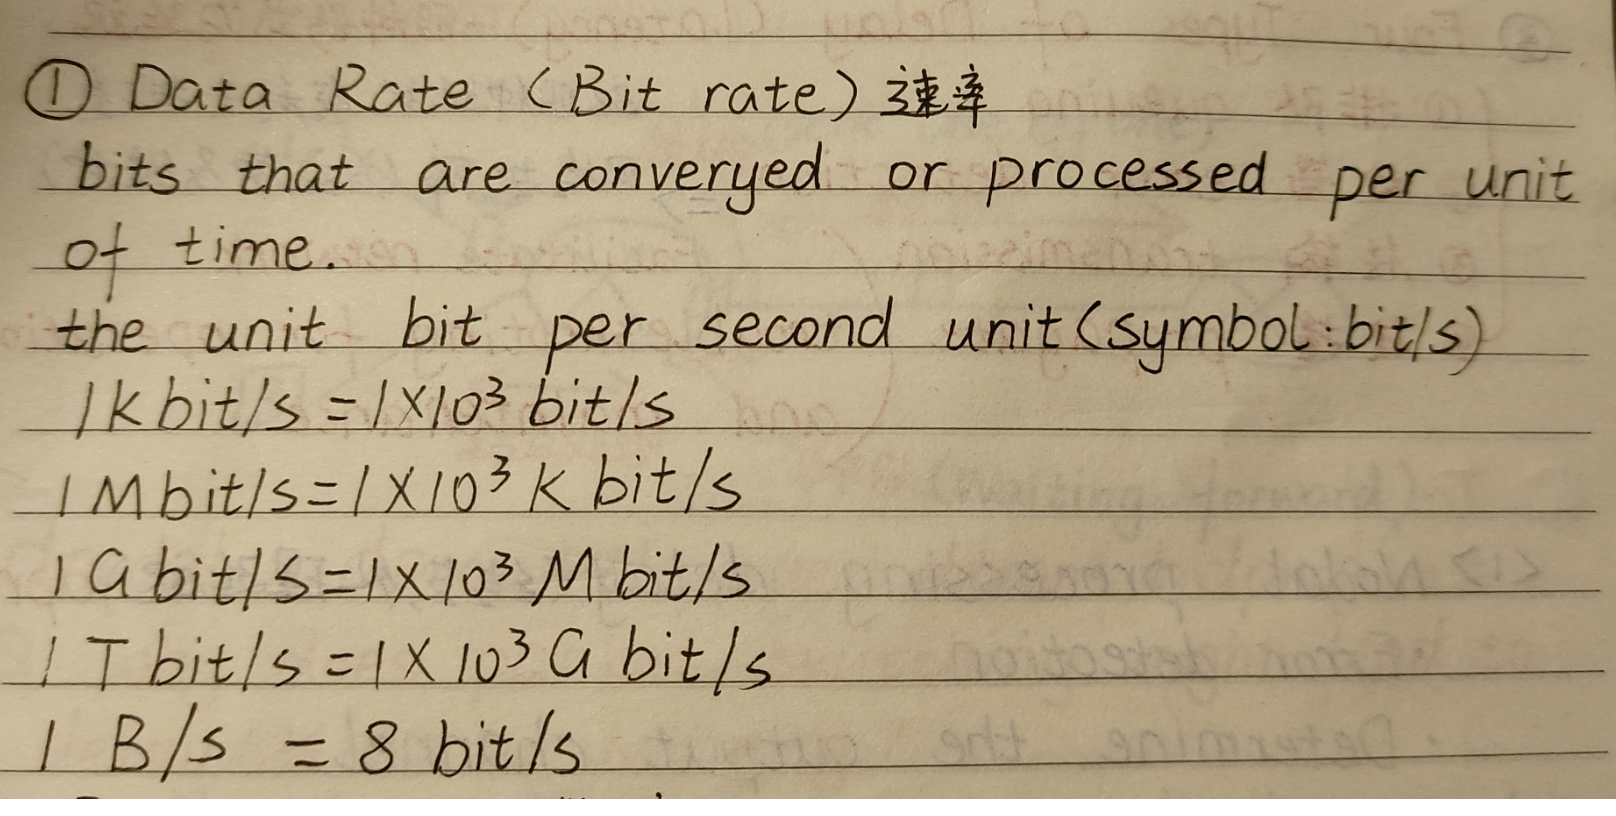 ① Data Rate (Bit rate) 速率
bits that are converyed or processed per unit
of time.
the unit bit per second unit (symbol: bit/s)
1 k bit/s = 1×10³ bit/s
1 M bit/s = 1×10³ k bit/s
1 G bit/s = 1×10³ M bit/s
1 T bit/s = 1×10³ G bit/s
1 B/s = 8 bit/s